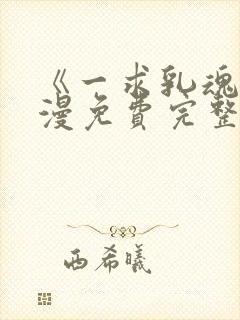 《一求乳魂
漫免费完整
西希曦